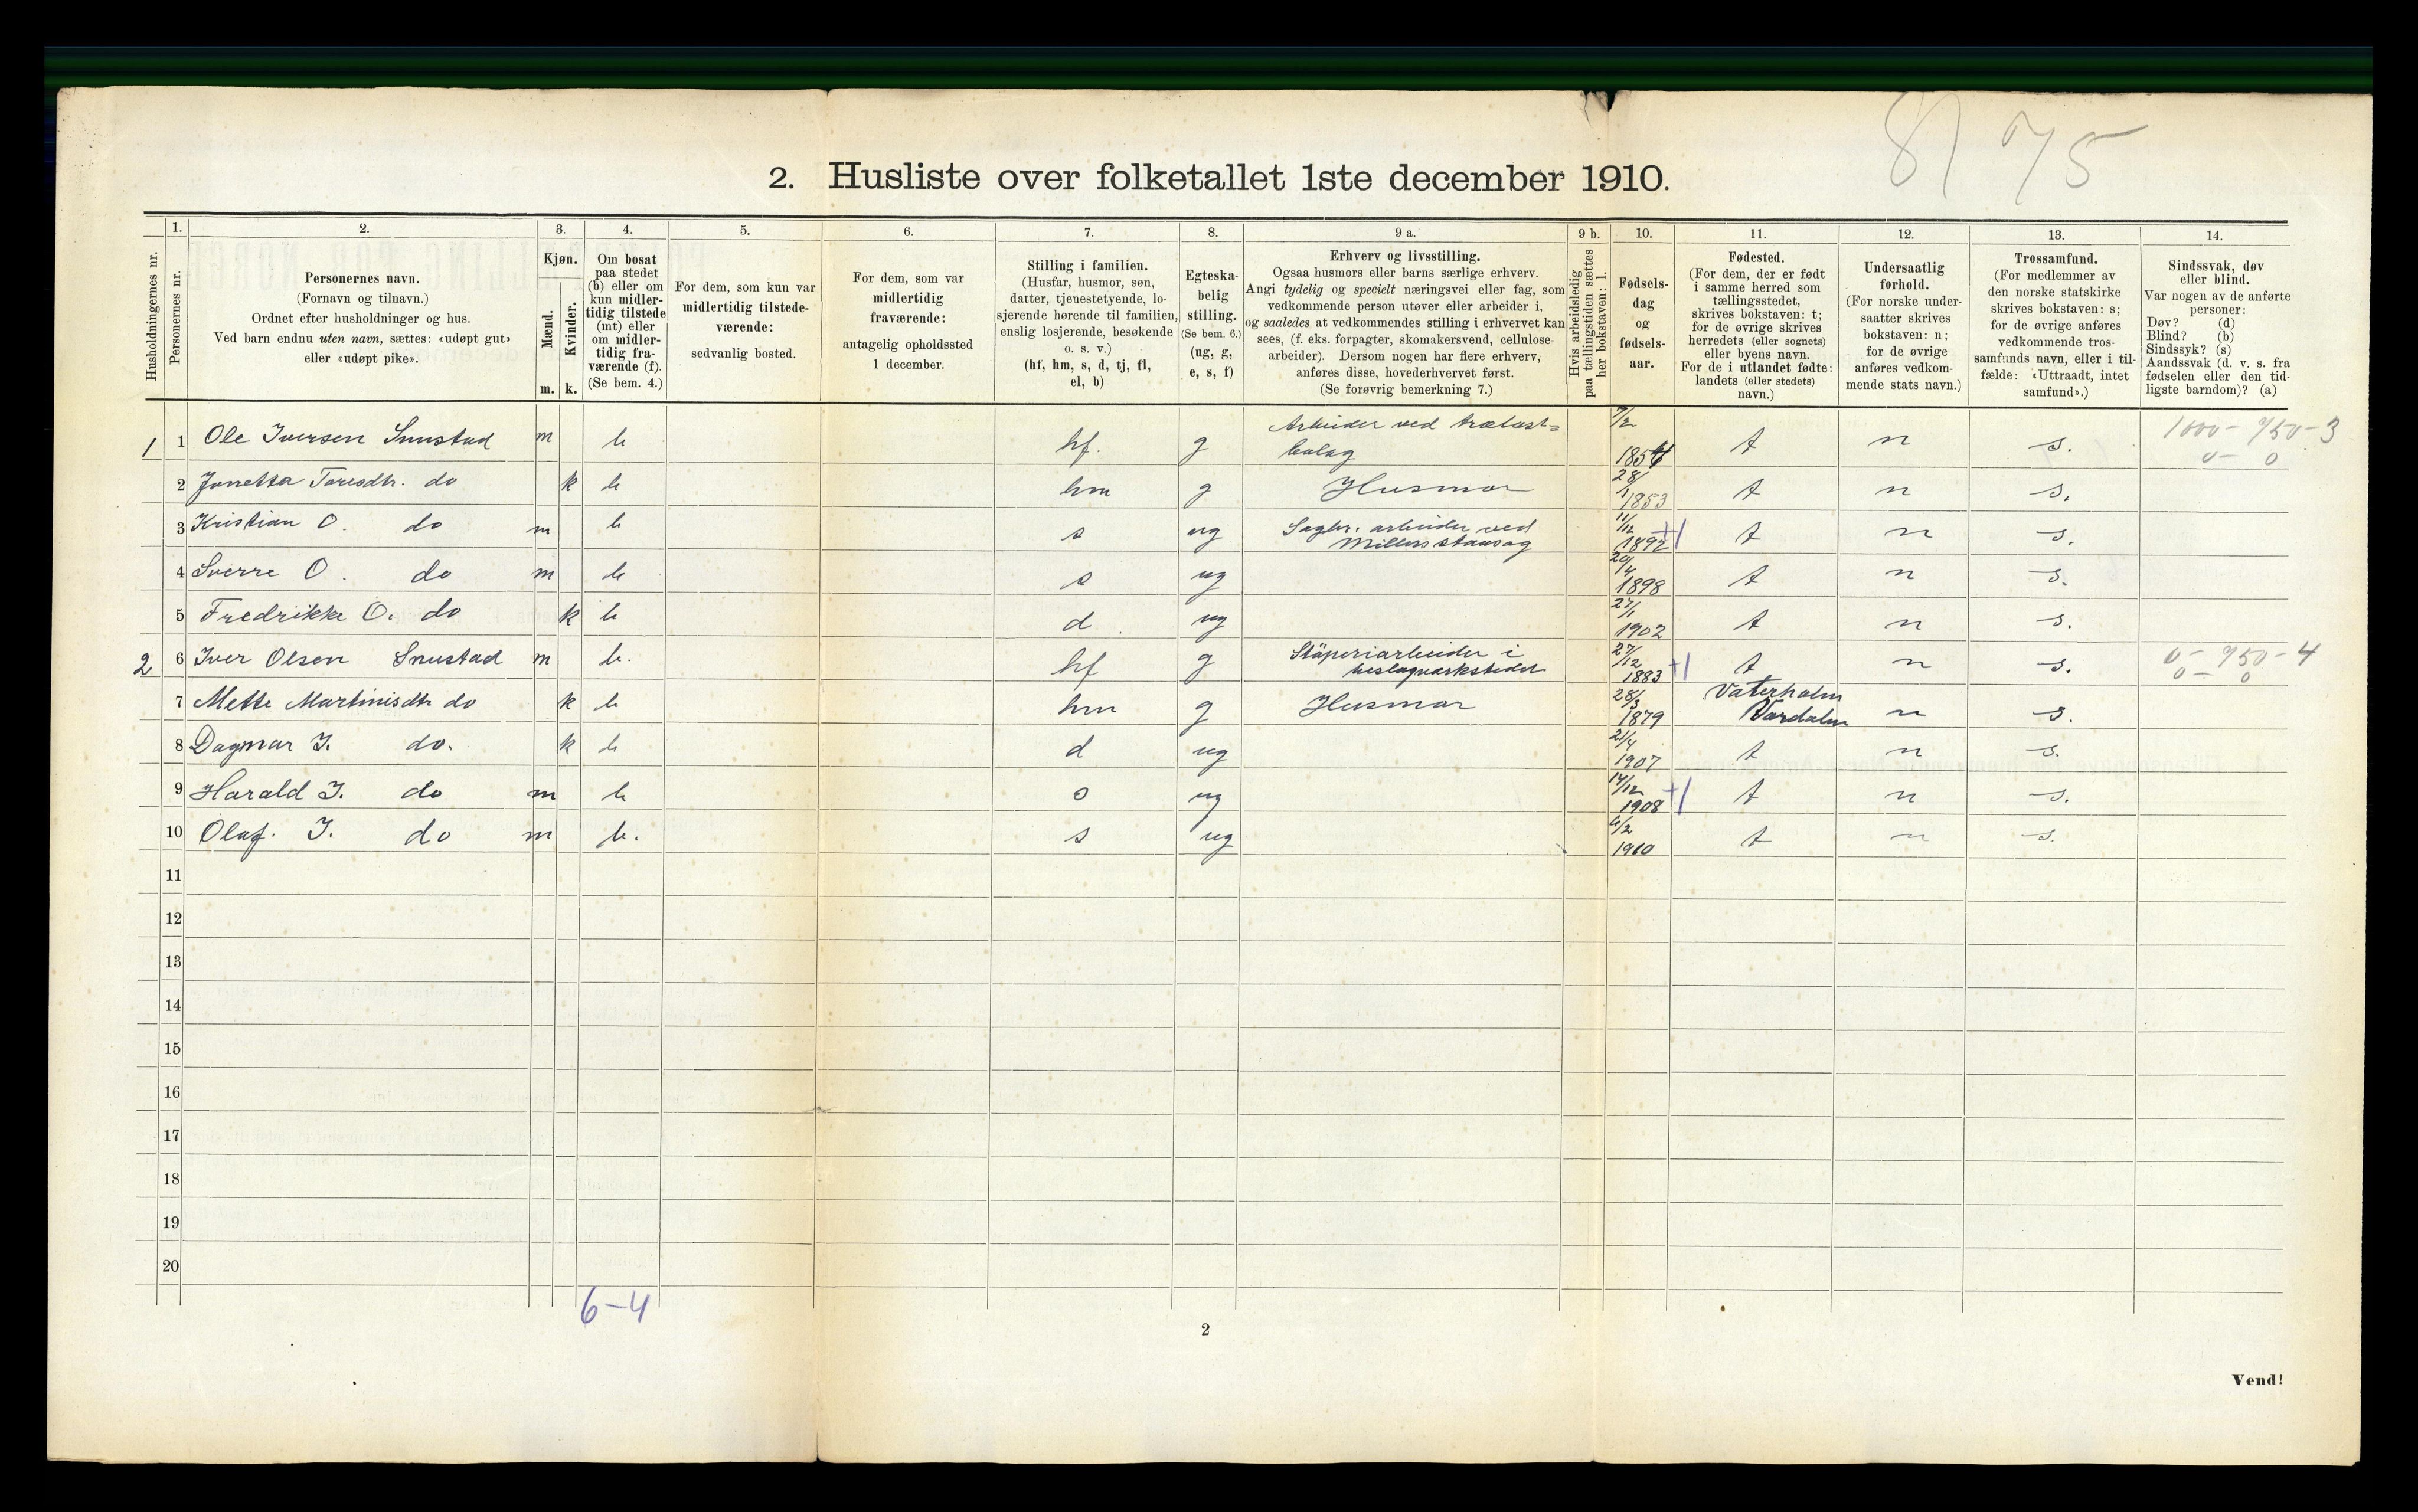 8) 75
2. Husliste over folketallet 1ste december 1910.
Husholdningernes nr.
1.
Personernes nr.
2.
Personernes navn.
(Fornavn og tilnavn.)
Ordnet efter husholdninger og hus.
Ved barn endnu uten navn, sættes: «udøpt gut»
eller «udøpt pike».
3.
Kjøn.
Mænd.
Kvinder.
m. k.
4.
Om bosat
paa stedet
(b) eller om
kun midler-
tidig tilstede
(mt) eller
om midler-
tidig fra-
værende (f).
(Se bem. 4.)
5.
For dem, som kun var
midlertidig tilstede-
værende:
sedvanlig bosted.
6.
For dem, som var
midlertidig
fraværende:
antagelig opholdssted
1 december.
7.
Stilling i familien.
(Husfar, husmor, søn,
datter, tjenestetyende, lo-
sjerende hørende til familien,
enslig losjerende, besøkende
o. s. v.)
(hf, hm, s, d, tj, fl,
el, b)
8.
Egteska-
belig
stilling.
(Se bem. 6.)
(ug, g,
e, s, f)
9 a.
Erhverv og livsstilling.
Ogsaa husmors eller barns særlige erhverv.
Angi tydelig og specielt næringsvei eller fag, som
vedkommende person utøver eller arbeider i,
og saaledes at vedkommendes stilling i erhvervet kan
sees, (f. eks. forpagter, skomakersvend, cellulose-
arbeider). Dersom nogen har flere erhverv,
anføres disse, hovederhvervet først.
(Se forøvrig bemerkning 7.)
9 b.
Hvis arbeidsledig
paa tællingstiden sættes
her bokstaven: l.
10.
Fødsels-
dag
og
fødsels-
aar.
11.
Fødested.
(For dem, der er født
i samme herred som
tællingsstedet,
skrives bokstaven: t;
for de øvrige skrives
herredets (eller sognets)
eller byens navn.
For de i utlandet fødte:
landets (eller stedets)
navn.)
12.
Undersaatlig
førhold.
(For norske under-
saatter skrives
bokstaven: n;
for de øvrige
anføres vedkom-
mende stats navn.)
13.
Trossamfund.
(For medlemmer av
den norske statskirke
skrives bokstaven: s;
for de øvrige anføres
vedkommende tros-
samfunds navn, eller i til-
fælde: «Uttraadt, intet
samfund».)
14.
Sindssvak, døv
eller blind.
Var nogen av de anførte
personer:
Døv? (d)
Blind? (b)
Sindssyk? (s)
Aandssvak (d. v. s. fra
fødselen eller den tid-
ligste barndom)? (a)
1 1 Ole Iversen Snustad m b hf. g Arbeider ved trælast=
bolag 7/2 1854 t n s. 1000 - 750 - 3
0 - 0
2 Jonetta Toresdtr. do k b hm g Husmor 28/1 1853 t n s.
3 Kristian O. do m b s ug Sagbr. arbeider ved
11/12 1892 +1 t n s.
4 Sverre O. do m b s ug 20/4 1898 t n s.
5 Fredrikke O. do k b d ug 27/1 1902 t n s.
2 6 Iver Olsen Snustad m b. hf g Stöperiarbeider i
beslagværkstedet 27/12 1883 +1 t n s. 0 - 750 - 4
0 - 0
7 Mette Martinisdtr do k b hm g Husmor 28/3 1879 Vaterholm
Værdalen n s.
8 Dagmar I. do. k b d ug 21/4 1907 t n s.
9 Harald I. do m b s ug 14/12 1908 +1 t n s.
10 Olaf. I. do m b. s ug 6/2 1910 t n s.
11
12
13
14
15
16
17
18
19
20
6-4
2
Vend!